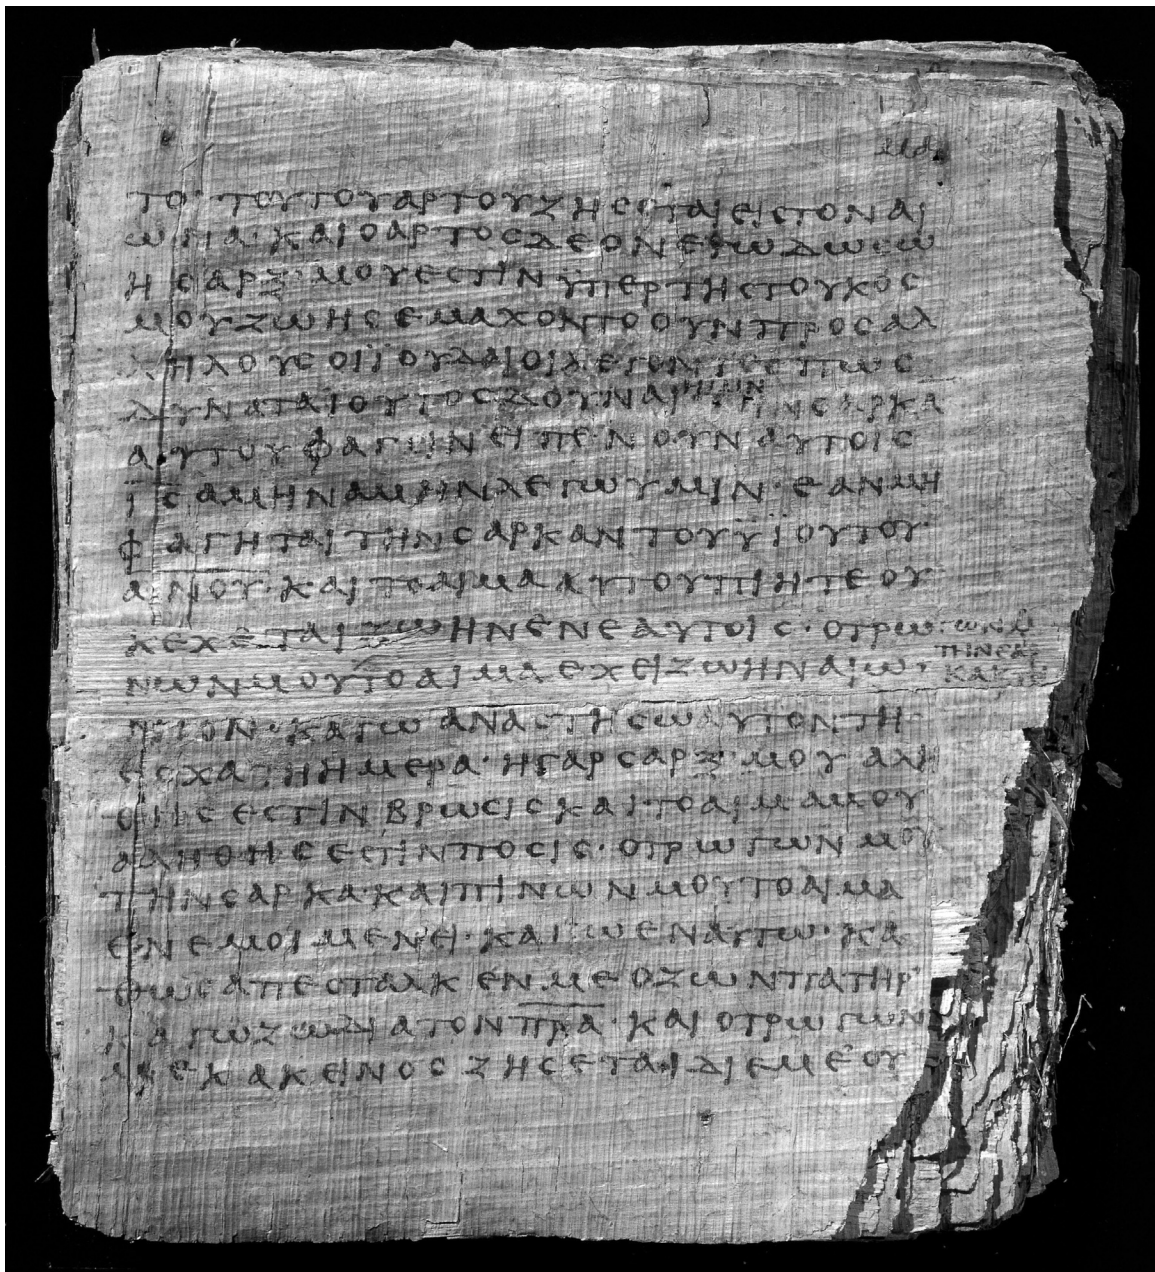 μα
το· τουτου αρτου ζησεται εις τον αι
ωνα· και ο αρτος δε ον εγω δωσω
η σαρξ μου εστιν ϋπερ της του κοσ
μου ζωης εμαχοντο ουν προς αλ
ληλους οι ϊουδαιοι λεγοντες πως
δυναται ουτος δουναι ημιν την σαρκα
αυτου φαγειν ειπεν ουν αυτοις
ϊς αμην αμην λεγω υμιν· εαν μη
φαγηται την σαρκαν του ϋϊου του
ανου· και το αιμα αυτου πιητε ου
κ εχεται ζωην εν εαυτοις· ο τρω
γων μου την σαρκα και
νων μου το αιμα εχει ζωην αιω
νιον· καγω αναστησω αυτον τη
εσχατη ημερα· η γαρ σαρξ μου αλη
θης εστιν βρωσις και το αιμα μου
αληθης εστιν ποσις· ο τρωγων μου
την σαρκα· και πινων μου το αιμα
εν εμοι μενει· καγω εν αυτω· κα
θως απεσταλκεν με ο ζων πατηρ
καγω ζω δια τον πρα· και ο τρωγων
με κακεινος ζησεται δι εμε ου